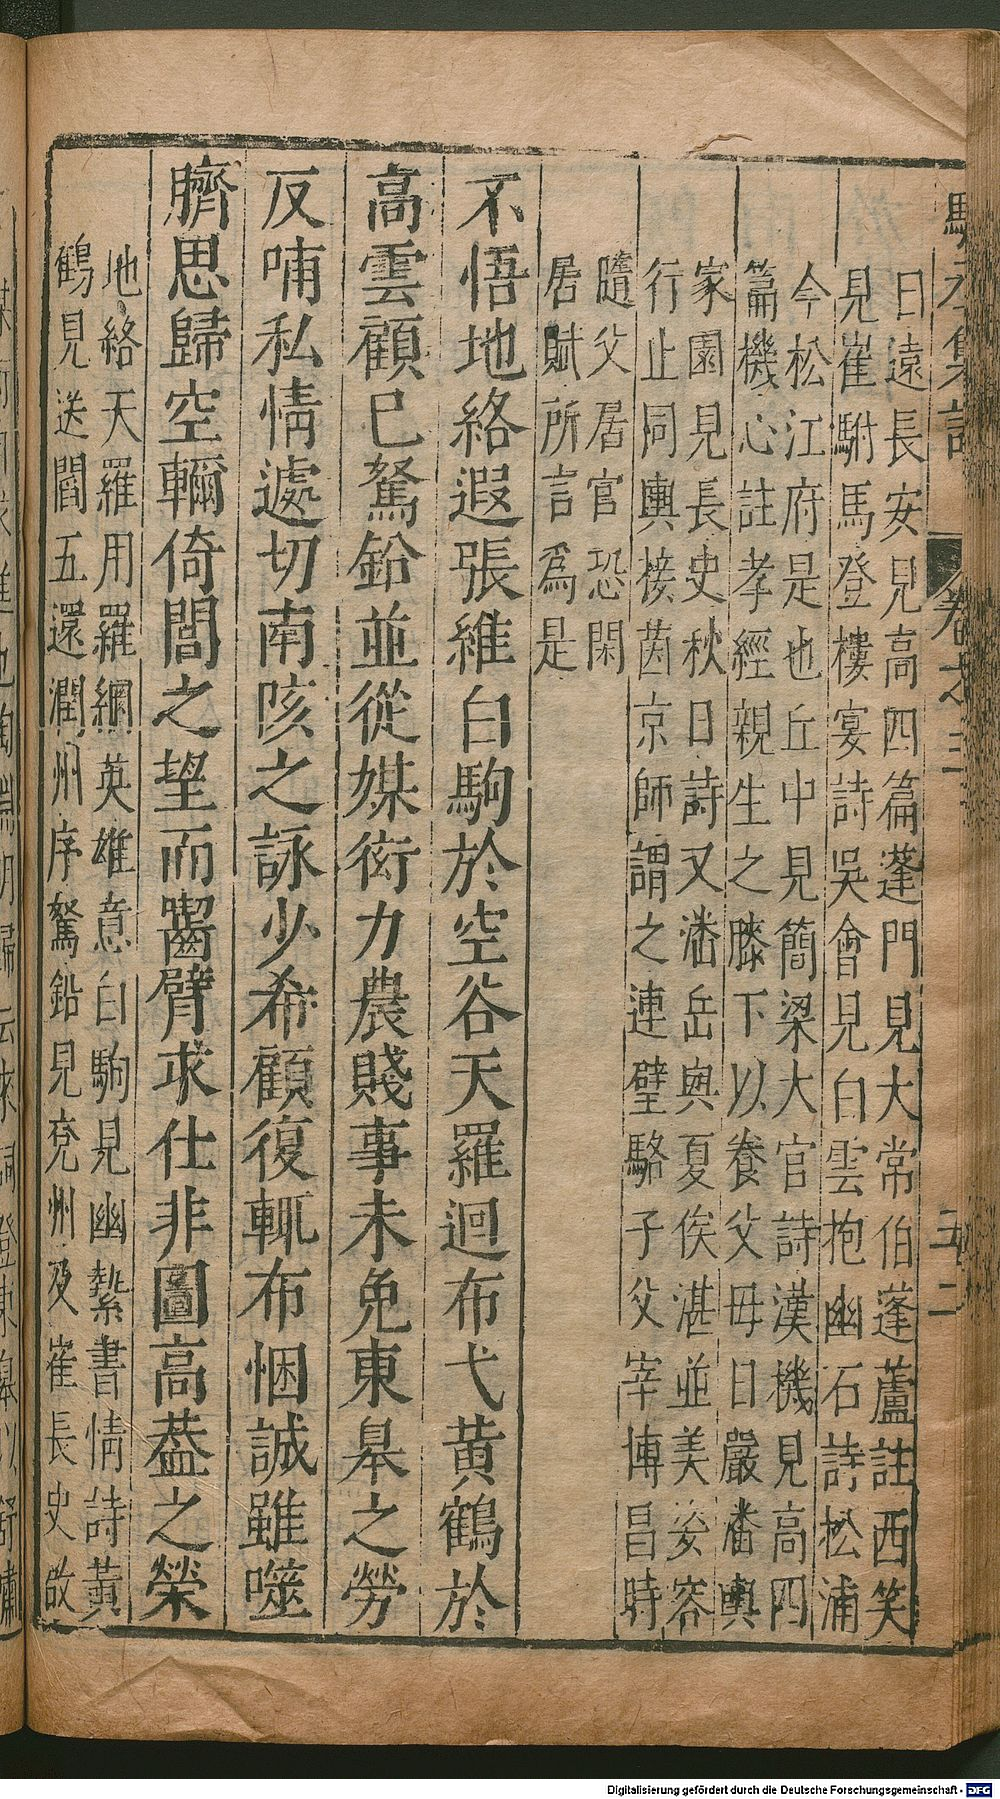 駱丞集註 卷之三 五二
日遠長安見高四篇蓬門見大常伯蓬蘆註西笑
見崔駙馬登樓宴詩吳會見白雲抱幽石詩松浦
今松江府是也丘中見簡梁大官詩漢機見高四
篇機心註孝經親生之膝下以養父母日嚴潘輿
家園見長史秋日詩又潘岳與夏侯湛並美姿容
行止同輿接茵京師謂之連璧駱子父宰博昌時
隨父居官恐閑
居賦所言為是
不悟地絡遐張維白駒於空谷天羅迥布弋黄鶴於
高雲顧巳駑鉛並從媒衒力農賤事未免東臯之勞
反哺私情遽切南陔之詠少希顧復輒布悃誠雖噬
臍思歸空軫倚閭之望而齧臂求仕非圖高葢之榮
地絡天羅用羅網英雄意白駒見幽縶書情詩黄
鶴見送閻五還潤州序駑鉛見兗州及崔長史啟
進也陶淵明歸去來詞登東臯以舒嘯
Digitalisierung gefördert durch die Deutsche Forschungsgemeinschaft - DFG